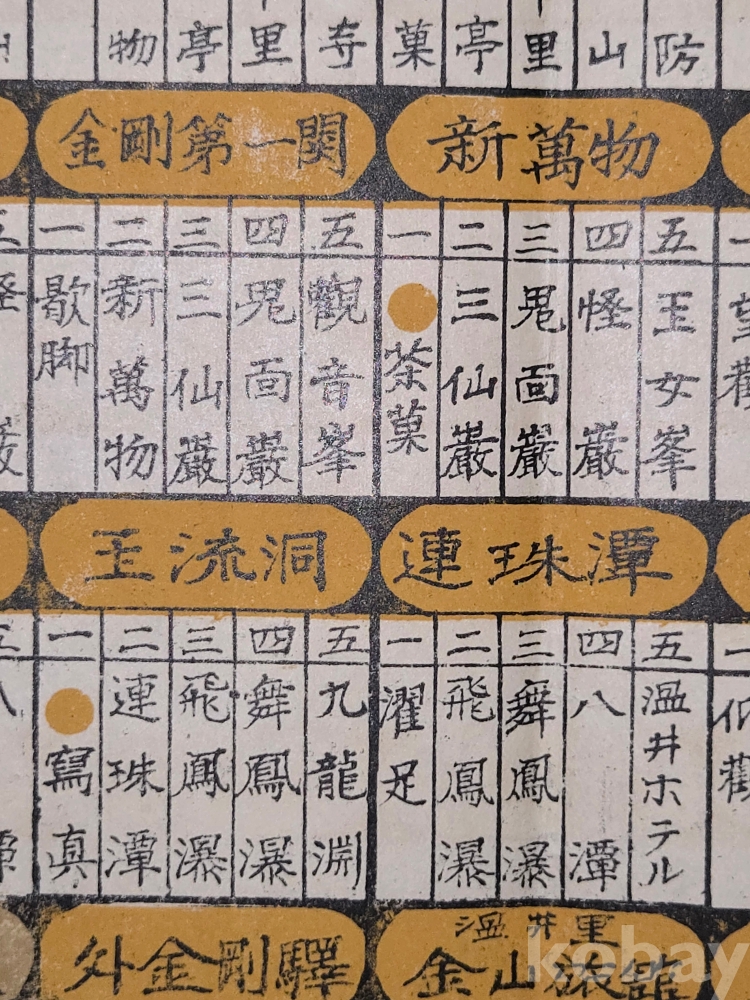 物
亭
里
寺
菓
亭
里
山
防
金剛第一関
新萬物
一 歇脚
二 新萬物
三 三仙巖
四 鬼面巖
五 觀音峯
一 茶菓
二 三仙巖
三 鬼面巖
四 怪巖
五 玉女峯
玉流洞
連珠潭
一 寫真
二 連珠潭
三 飛鳳瀑
四 舞鳳瀑
五 九龍淵
一 濯足
二 飛鳳瀑
三 舞鳳瀑
四 八潭
五 温井ホテル
外金剛驛
温井里
金山旅館
kobay